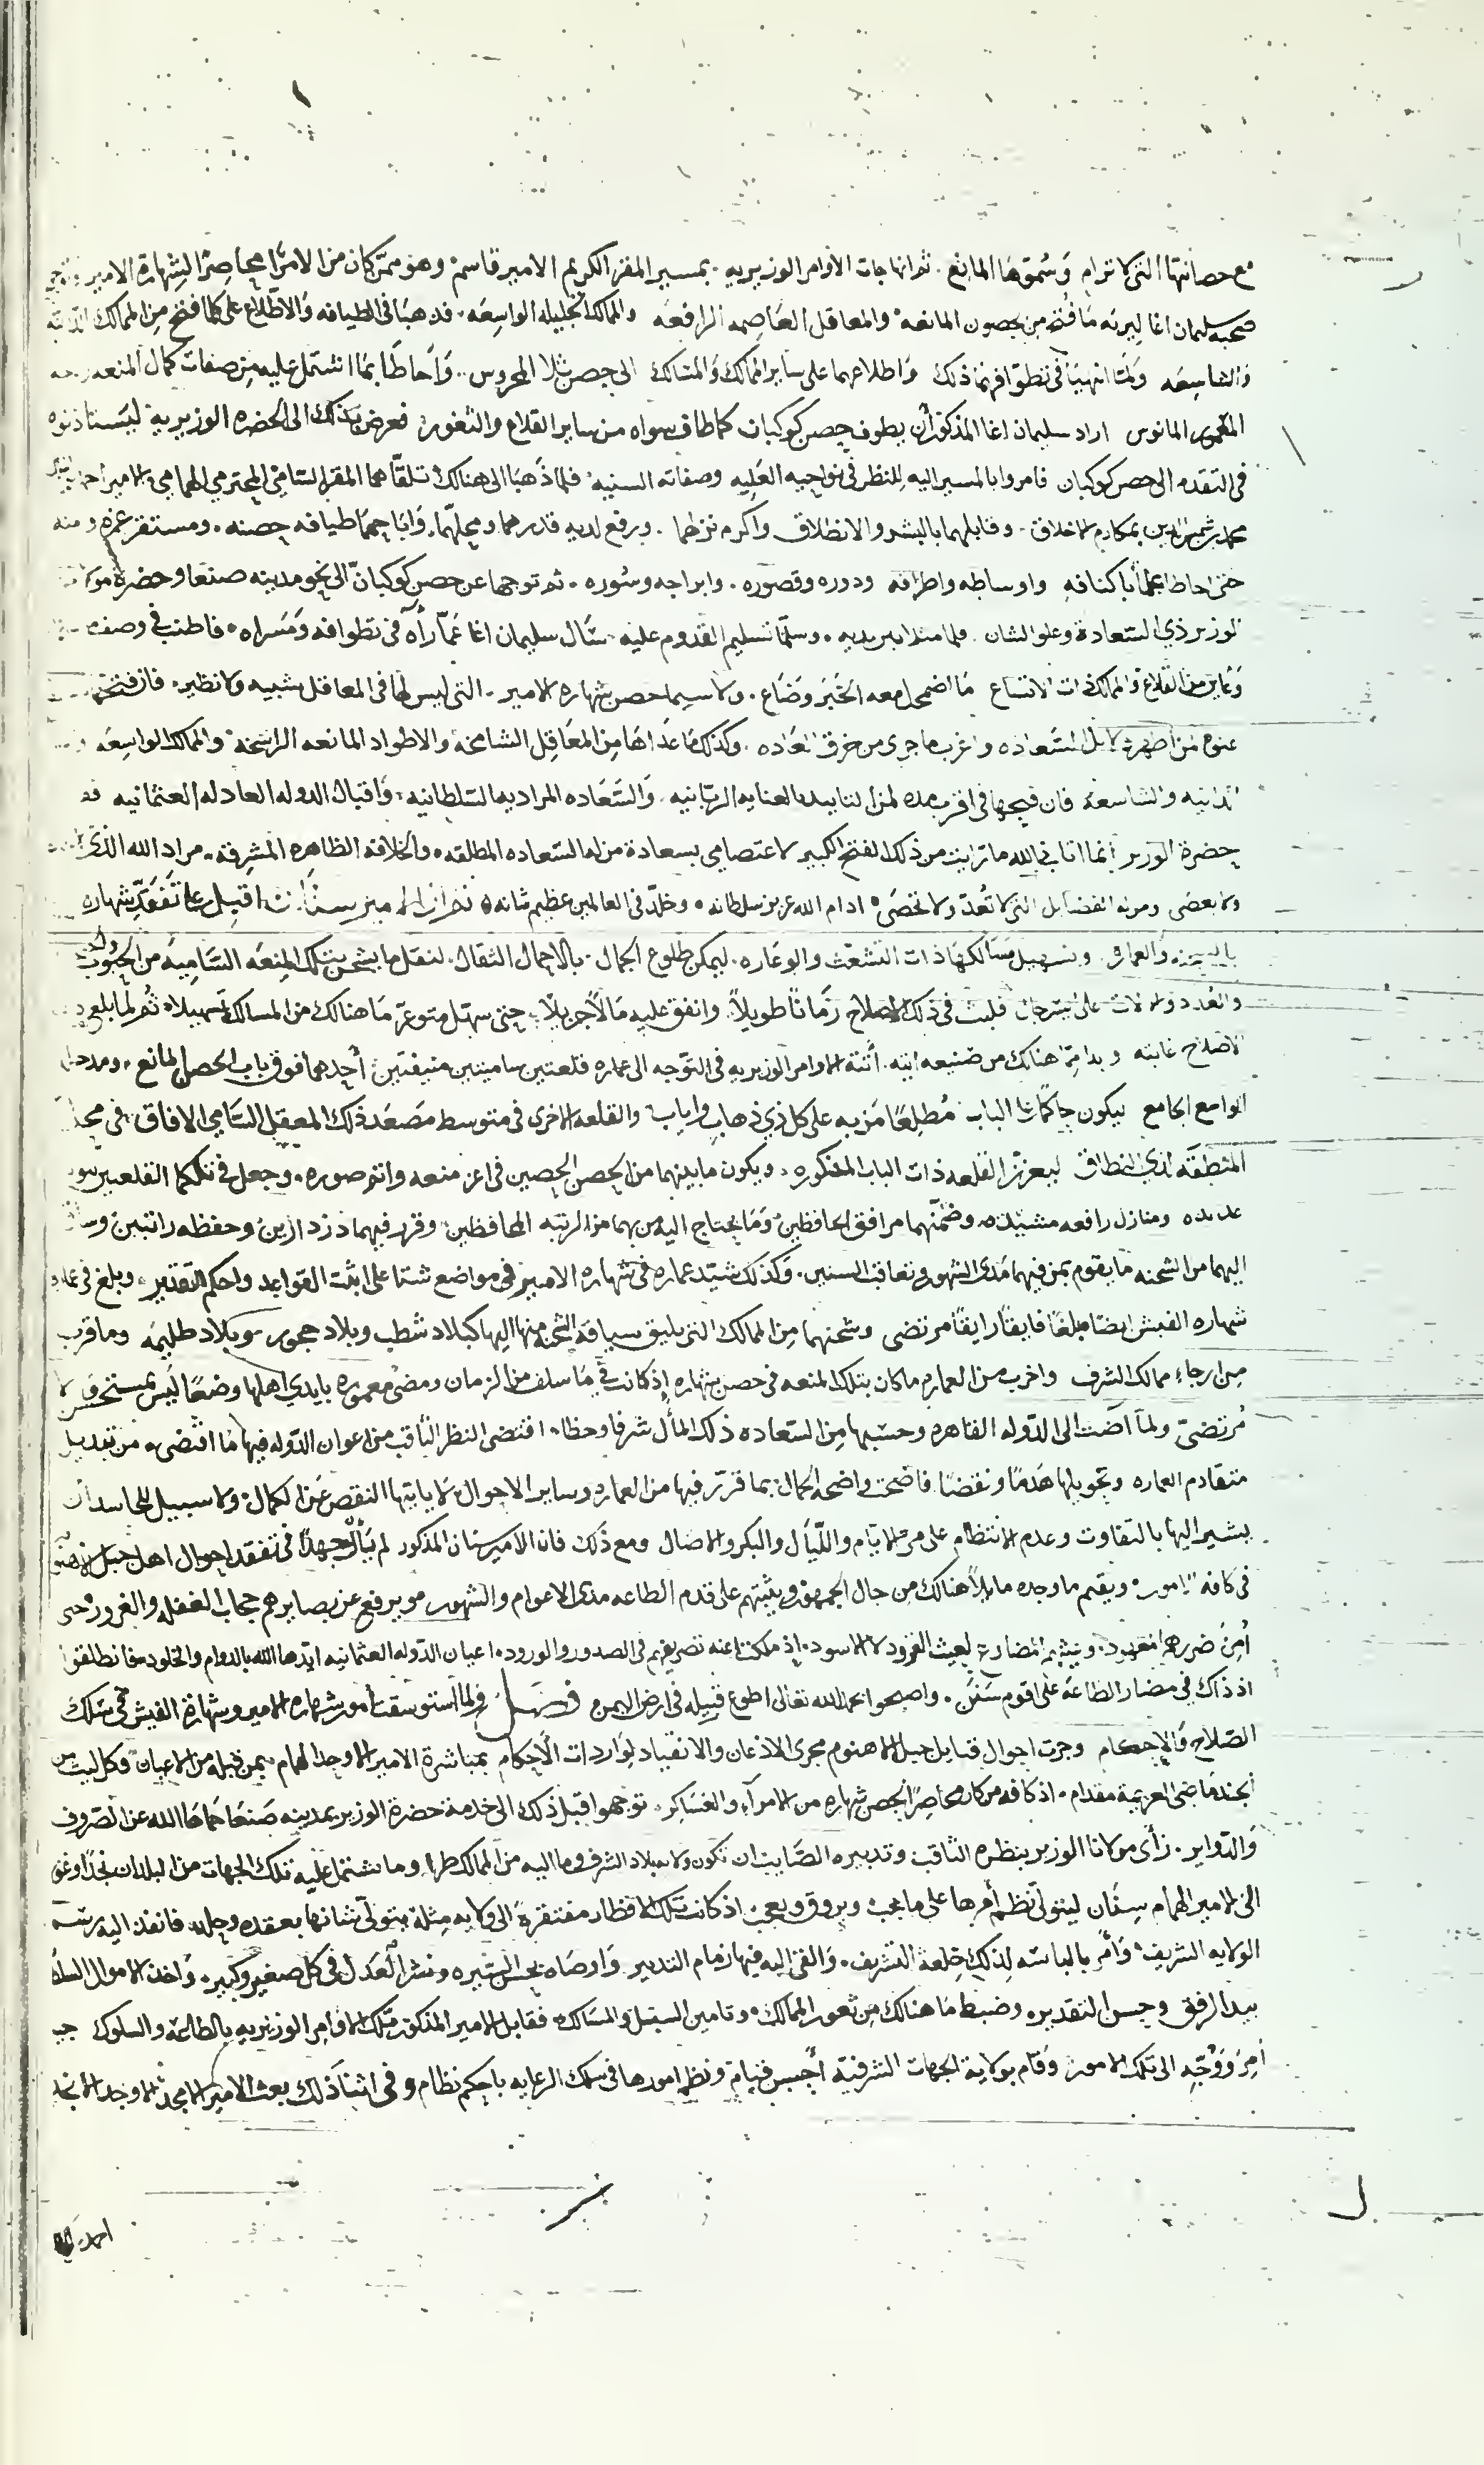 مع حصانتها التي لا ترام وسموها المانع ثم انها جات الأوامر الوزيريه بمسير المقر الكريم الامير قاسم وهو ممن كان من الامرا محاصرا لشهارة الامير
صحبه سليمان اغا ليريه ما فتح من الحصون المانعه والمعاقل العاصمه الرافعه والممالك الجليله الواسعه فذهبا في الطيافه والاطلاع على كلما فتح من الممالك الدانيه
والشاسعه ولما انتهيا في تطوافهما ذلك واطلاعهما على ساير الممالك والمسالك الى حصن ثلا المحروس واحاطا بما اشتمل عليه من صفات كمال المنعه
المعمور المانوس اراد سليمان اغا المذكور ان يطوف حصن كوكبان كما طاف سواه من ساير القلاع والثغور فعرض بذلك الى الحضره الوزيريه ليستاذنوه
في التقدم الى حصن كوكبان فامروا بالمسير اليه للنظر في نواحيه العليه وصفاته السنيه فلما ذهبا الى هنالك تلقاهما المقر السامي المحترمي الهمامي الامير احمد بن
محمد بن شمس الدين بمكارم الاخلاق وقابلهما بالبشر والانطلاق واكرم نزلهما ورفع لديه قدرهما ومحلهما واباحهما طيافه حصنه ومستقر عزه ومنه
حتى احاطا علما باكنافه واوساطه واطرافه ودوره وقصوره وابراجه وسوره ثم توجها عن حصن كوكبان الى نحو مدينه صنعا وحضرة مولانا
الوزير ذي السعادة وعلو الشان فلما مثلا بين يديه وسلما تسليم القدوم عليه سال سليمان اغا عما رآه في تطوافه ومسراه فاطنب في وصف
وعاين من القلاع والممالك ذات الاتساع ما اضمحل معه الخبر وضاع ولا سيما حصن شهاره الامير التي ليس لها في المعاقل شبيه ولا نظير فان فتحها
عنوه من اظهر دلايل السعاده واغرب ما جرى من خرق العاده وكذلك ما عداها من المعاقل الشامخه والاطواد المانعه الراسخه والممالك الواسعه
الدانيه والشاسعه فان فتحها في اقرب مده لمن التاييد بالعنايه الربانيه والسعاده المراديه السلطانيه واقبال الدوله العادله العثمانيه
حضرة الوزير انما اتاني الله ما ترايت من ذلك الفتح الكبير لاعتصامي بسعادة من له السعاده المطلقه والخلافه الظاهره المشرقه مراد الله الذي
ولا يعصى ومن له الفضايل التي لا تعد ولا تحصى ادام الله عزيز سلطانه وخلد في العالمين عظيم شانه ثم ان الامير سنان اقبل على تفقد شهاره
والعماره وتسهيل مسالكها ذات التشعث والوعاره ليمكن طلوع الجمال بالاحمال الثقال لنقل ما يشحن بتلك المنعه الساميه من الحبوب
والعدد والالات على فلبث في ذلك الاصلاح زمانا طويلا وانفق عليه مالا جزيلا حتى سهل متوعر ما هنالك من المسالك تسهيلا ثم لما بلغ
الاصلاح غايته وبدا مما هنالك من صنيعه ايته أتته الاوامر الوزيريه في التوجه الى عماره قلعتين ساميتين منيفتين أحدهما فوق باب الحصن المانع ومدخل
الجامع ليكون حاكما على الباب مطلعا من به على كل ذي ذهاب واياب والقلعه الاخرى في متوسط مصعد ذلك المعقل السامي الافاق في محل
المنطقه لذي النطاق ليعزز القلعه ذات الباب المذكوره ويكون ما بينهما من الحصن الحصين في اعز منعه واتم صوره وجعل في تلكما القلعتين
عديده ومنازل رافعه مشيده وضمنهما مرافق المحافظين وما يحتاج اليه من بهما من الرتبه المحافظين وقرر فيهما دزدارين وحفظه راتبين
اليهما من الشحنه ما يقوم بمن فيهما مدى الشهور وتعاقب السنين وكذلك شيد عماره في شهاره الامير في مواضع شتا على اثبت القواعد واحكم التقدير وبلغ في عماره
شهاره الفيش ايضا مبلغا فايقا رايقا مرتضى وشحنهما من الممالك التي يليق سياقه الشحنه منها اليها كبلاد شظب وبلاد حجور وبلاد ظليمه وما قرب
من ارجاء ممالك الشرف واخرب من العماره ما كان بتلك المنعه في حصن شهاره إذ كانت في ما سلف من الزمان ومضى معموره بايدي اهلها وضعا ليس بمستحسن
مرتضى ولما آضت الى الدوله القاهره وحسبها من السعاده ذلك المآل شرفا وحظا اقتضى النظر الثاقب من اعوان الدوله فيها ما اقتضى من تبديل
متقادم العماره وتحويلها هدما ونقضا فاضحت واضحة الجمال بما قرر فيها من العماره وساير الاحوال لا ياتيها النقص عن الكمال ولا سبيل للحاسد ان
يشير اليها بالتفاوت وعدم الانتظام على مر الايام والليال والبكر والاصال ومع ذلك فان الامير سنان المذكور لم يأل جهدا في تفقد احوال اهل جبل الاهنوم
في كافه الامور ويقيم ما وجده مايلا هنالك من حال الجمهور ويثبتهم على قدم الطاعه مدى الاعوام والشهور ويرفع عن بصايرهم حجاب الغفله والغرور حتى
أمن ضررهم المعهود اذ ملكت اعنه تصريفهم في الصدور والورود اعيان الدوله العثمانيه ايدها الله بالدوام والخلود فانطلقوا
اذ ذاك في مضمار الطاعه على اقوم سنن واصبحوا بحمد الله تعالى اطوع قبيله في ارض اليمن فصل ولما استوسقت امور شهاره الامير وشهارة الفيش في سلك
الصلاح والاحكام وجرت احوال قبايل جبل الاهنوم مجرى الاذعان والانقياد لواردات الاحكام بمباشرة الامير الاوحد الهمام بمن قبله من الاعيان وكل ليث من
الجند ماضي العزيمة مقدام اذ كافه من كان محاصرا لحصن شهاره من الامرآء والعساكر توجهوا قبل ذلك الى خدمة حضرة الوزير بمدينه صنعا حماها الله عن الصروف
والدواير رأى مولانا الوزير بنظره الثاقب وتدبيره الصايب ان تكون ولايه بلاد الشرف وما اليه من الممالك طرا وما تشتمل عليه تلك الجهات من البلدان نجدا وغورا
الى الامير الهمام سنان ليتولى نظم أمرها على ما يجب ويروق ويعجب اذ كانت تلك الاقطار مفتقرة الى ولايه مثله يتولى شانها بعقده وحله فانفذ اليه رسم
الولايه الشريف وأمر بالباسه لذلك خلعة التشريف والقى اليه فيها زمام التدبير واوصاه بحسن السيره ونشر العدل في كل صغير وكبير واخذ الاموال السلطانيه
بيد الرفق وحسن التقدير وضبط ما هنالك من ثغور الممالك وتامين السبل والمسالك فقابل الامير المذكور تلك الاوامر الوزيريه بالطاعه والسلوك
أمر ووجه الى تلك الامور وقام بولاية الجهات الشرفيه أحسن قيام ونظم امورها في سلك الرعايه باحكم نظام وفي اثنا ذلك بعث الامير الامجد الاوحد
احمد